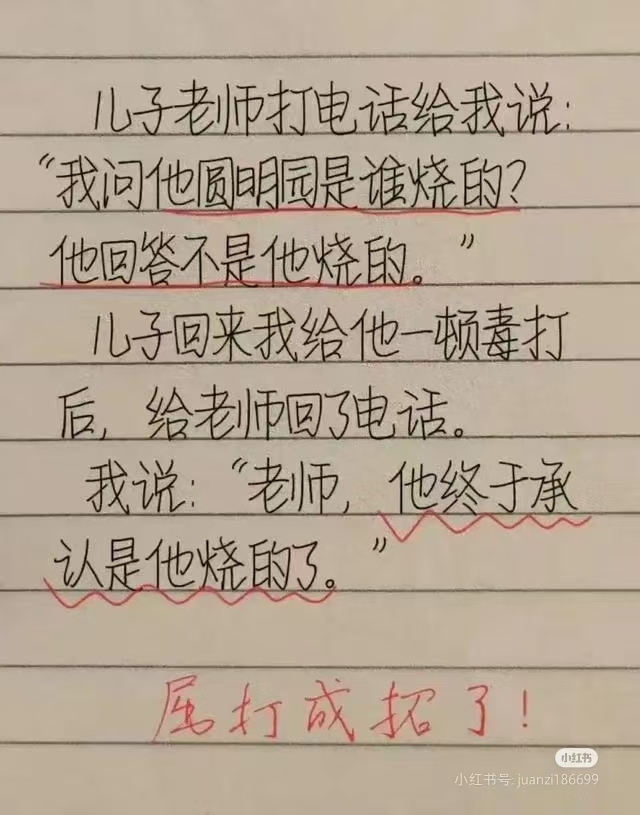 儿子老师打电话给我说：
“我问他圆明园是谁烧的？
他回答不是他烧的。”
儿子回来我给他一顿毒打
后，给老师回了电话。
我说：“老师，他终于承
认是他烧的了。”
屈打成招了！
小红书
小红书号: juanzi186699